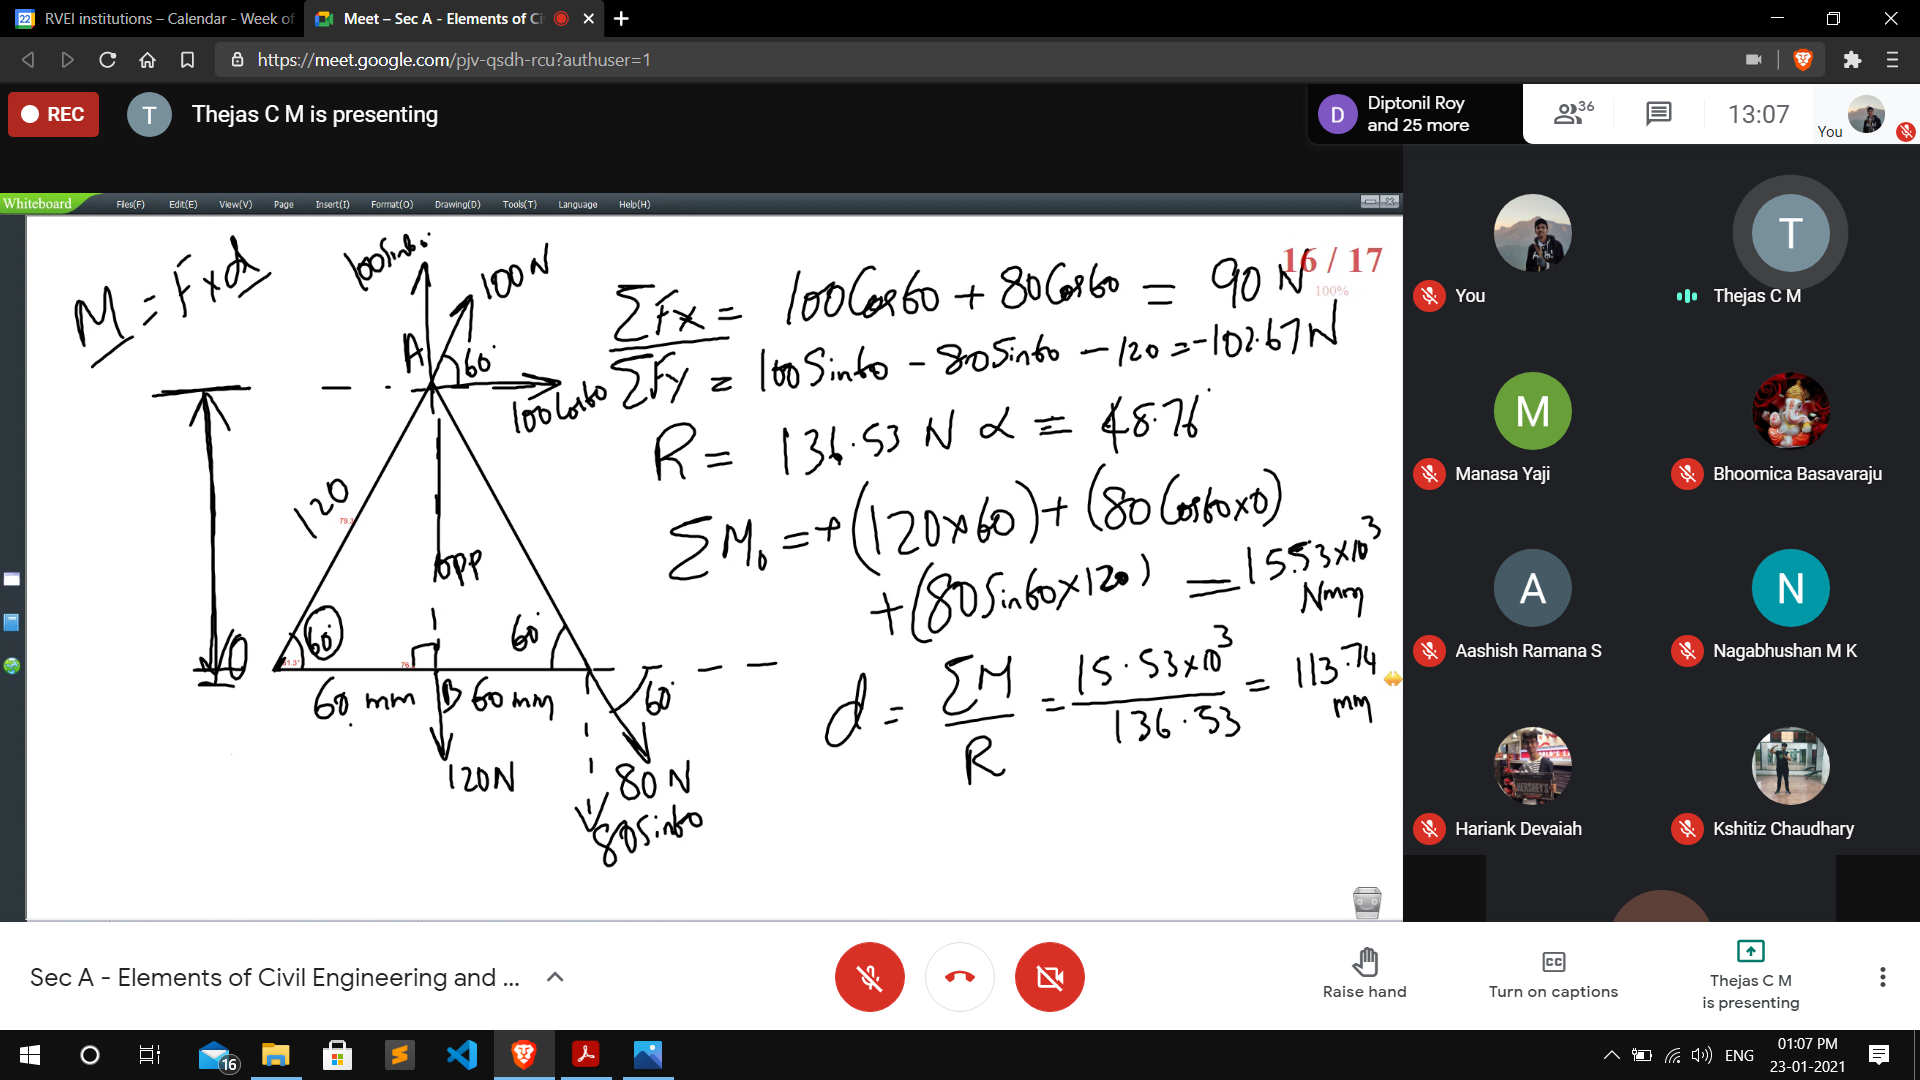 RVEI institutions – Calendar - Week of
Meet – Sec A - Elements of Ci
https://meet.google.com/pjv-qsdh-rcu?authuser=1
REC
T
Thejas C M is presenting
D
Diptonil Roy
and 25 more
36
13:07
You
Whiteboard
Files(F) Edit(E) View(V) Page Insert(I) Format(O) Drawing(D) Tools(T) Language Help(H)
16 / 17
100%
M = F x d
100Sin60
100N
A
60°
100Cos60
120
opp
60°
60°
O
60 mm
B
60mm
60°
120N
80 N
80Sin60
ΣFx = 100Cos60 + 80Cos60 = 90 N
ΣFy = 100Sin60 - 80Sin60 - 120 = -102.67N
R = 136.53 N α = 48.76°
ΣM₀ = +(120x60)+(80Cos60x0)
+(80Sin60x120) = 15.53x10³
Nmm
d = ΣM/R = 15.53x10³/136.53 = 113.74
mm
You
T
Thejas C M
M
Manasa Yaji
Bhoomica Basavaraju
A
Aashish Ramana S
N
Nagabhushan M K
Hariank Devaiah
Kshitiz Chaudhary
Sec A - Elements of Civil Engineering and ...
Raise hand
Turn on captions
Thejas C M
is presenting
16
ENG
01:07 PM
23-01-2021